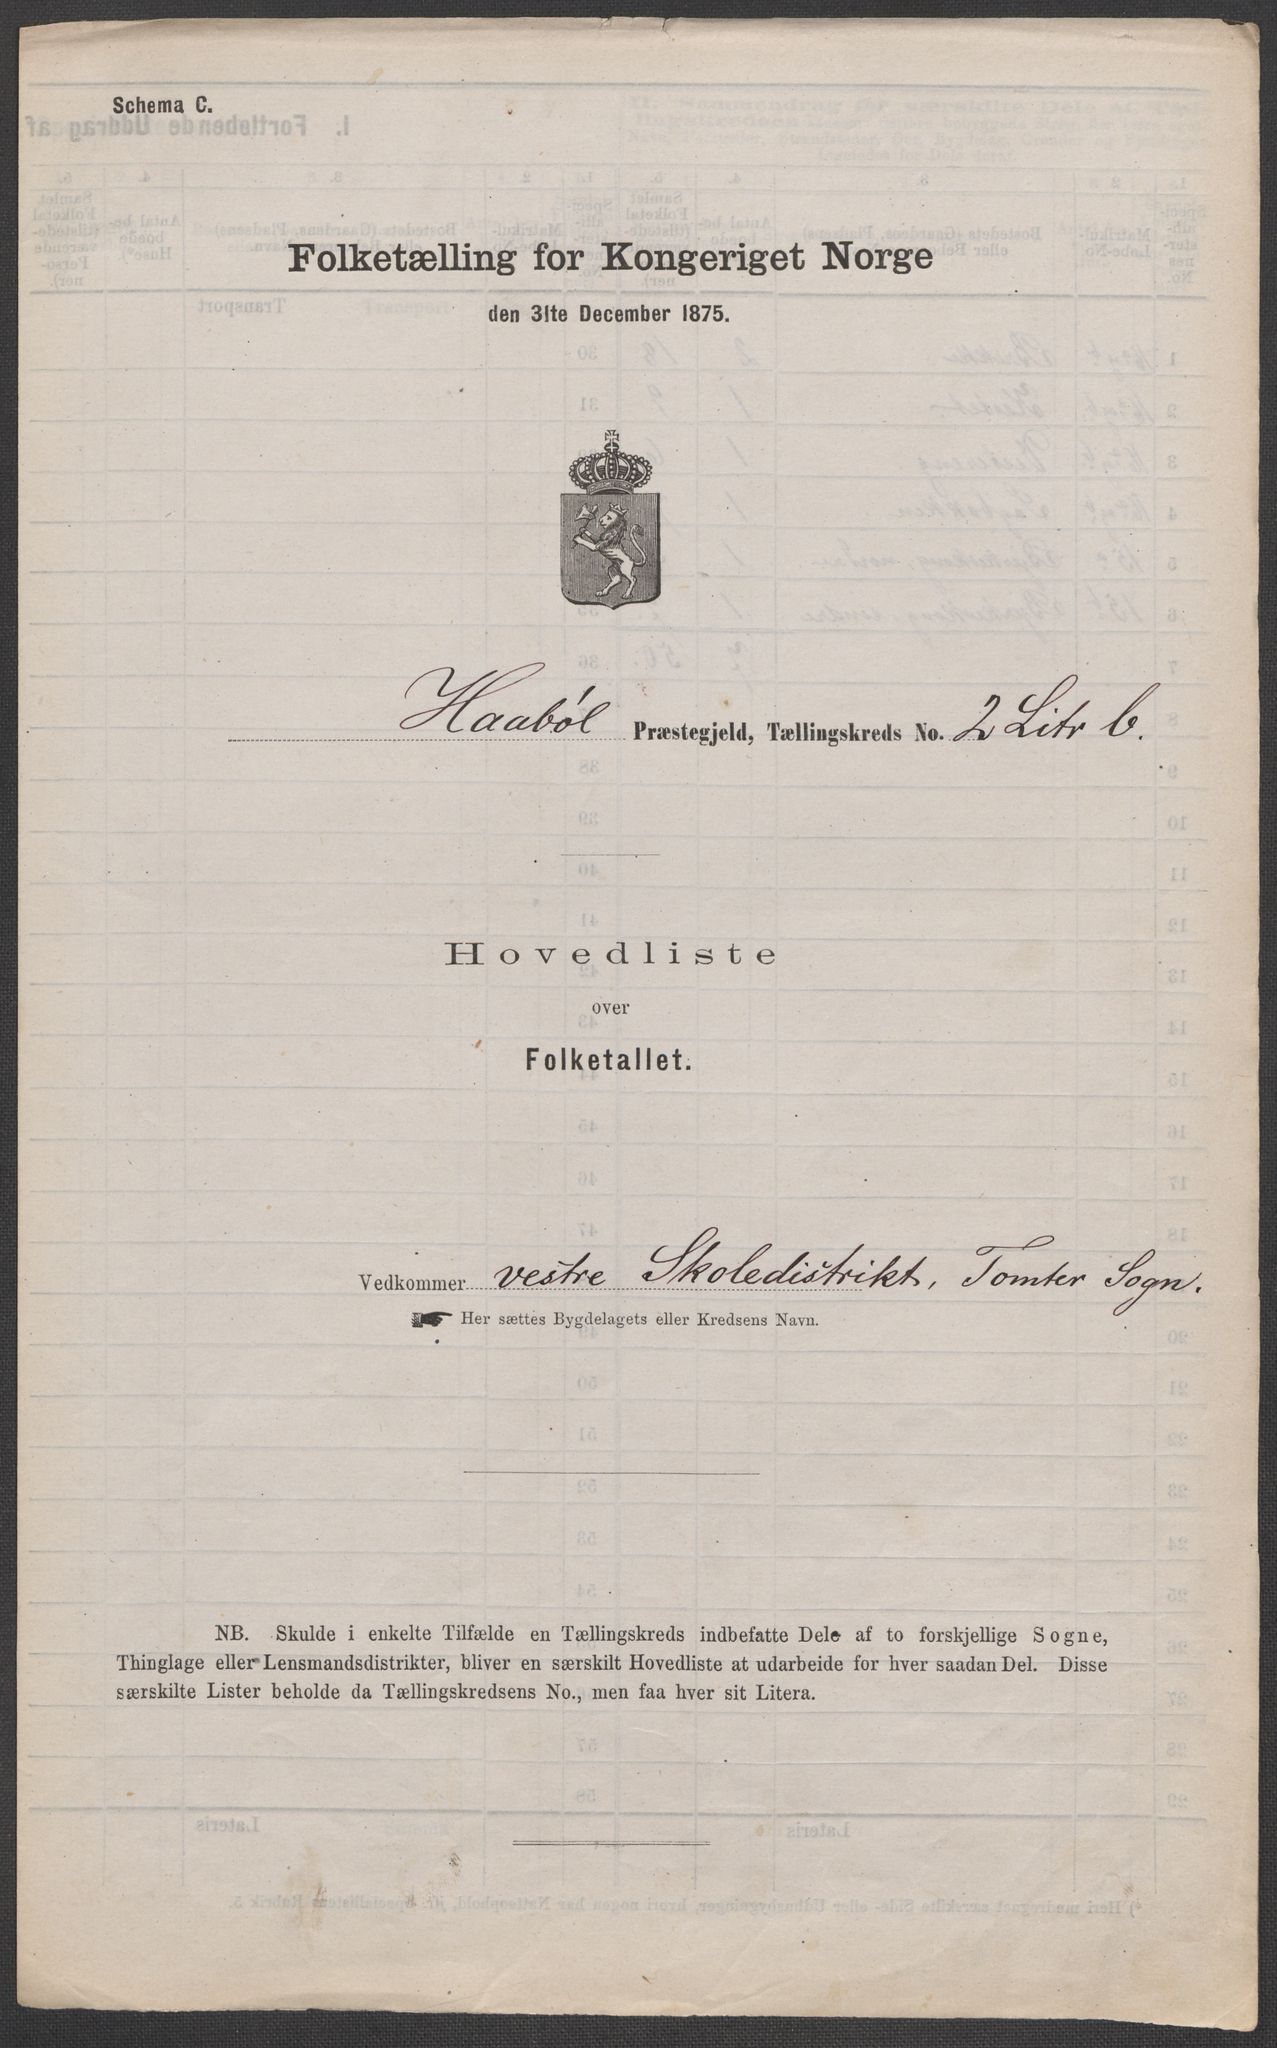 Schema C.
Folketælling for Kongeriget Norge
den 31te December 1875.
Haabøl Præstegjeld, Tællingskreds No. 2 Litr b.
Hovedliste
over
Folketallet.
Vedkommer vestre Skoledistrikt, Tomter Sogn.
Her sættes Bygdelagets eller Kredsens Navn.
NB. Skulde i enkelte Tilfælde en Tællingskreds indbefatte Dele af to forskjellige Sogne,
Thinglage eller Lensmandsdistrikter, bliver en særskilt Hovedliste at udarbeide for hver saadan Del. Disse
særskilte Lister beholde da Tællingskredsens No., men faa hver sit Litera.